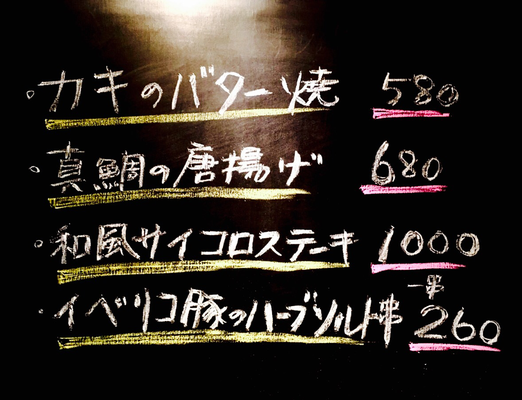 カキのバター焼 580
真鯛の唐揚げ 680
和風サイコロステーキ 1000
一串
イベリコ豚のハーブソルト串 260